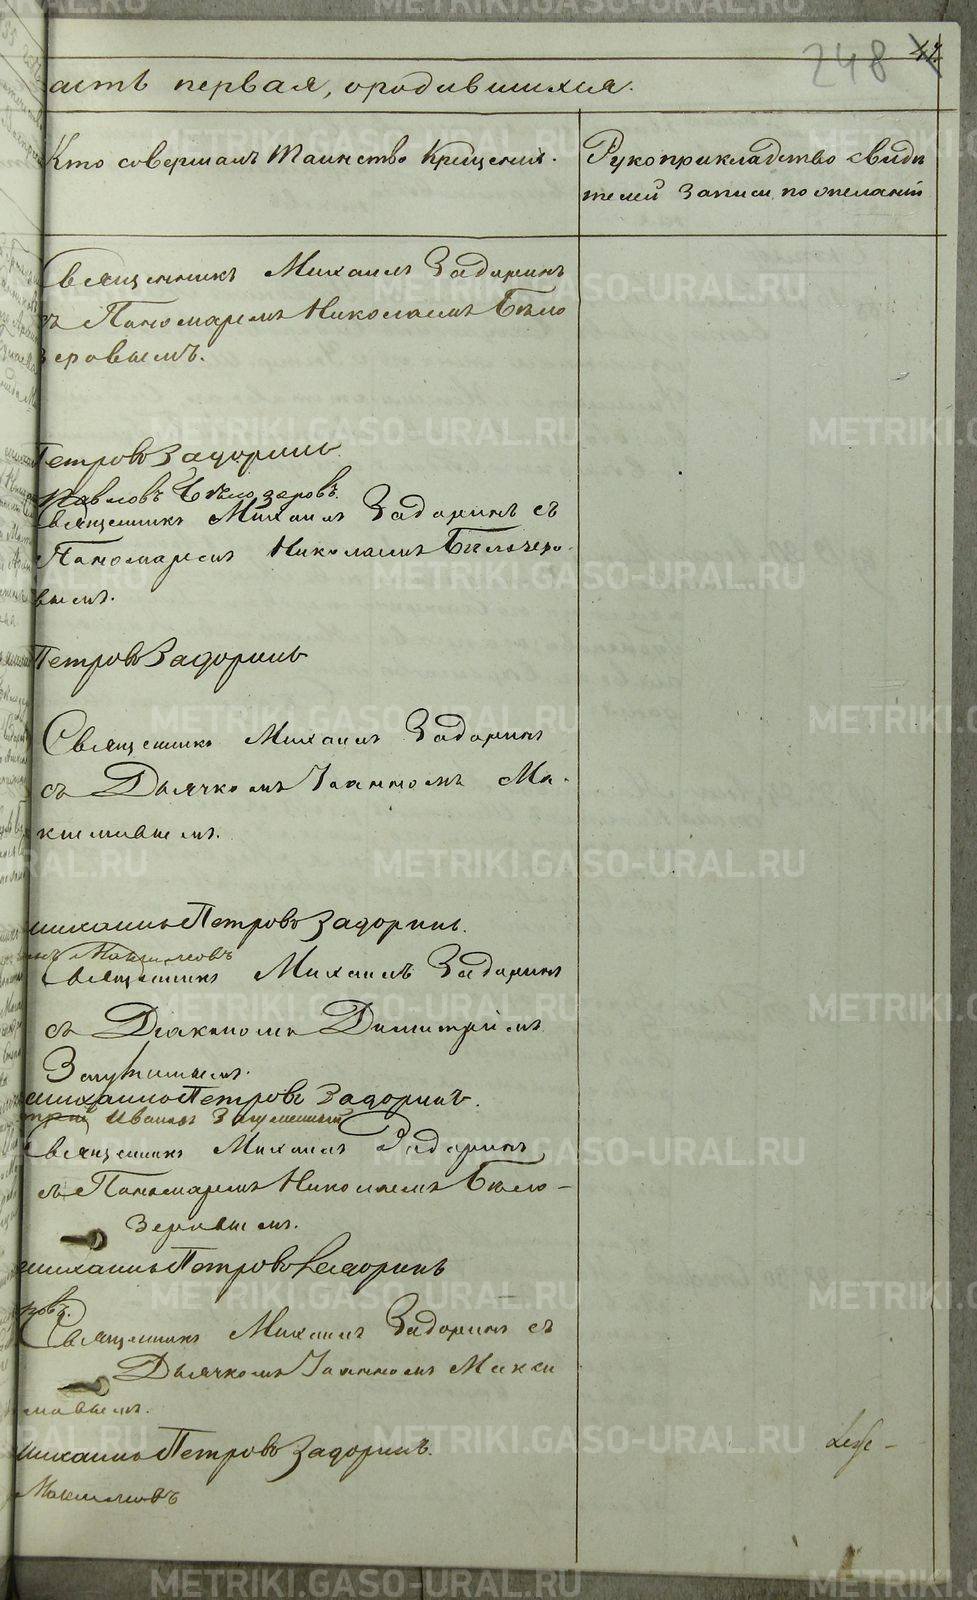 248 47.
асть первая, ородившихся.
Кто совершалъ Таинство Крещенія.
Рукоприкладство свидѣ
телей записи по желанію
Священникъ Михаилъ Задоринъ
съ Пономаремъ Николаемъ Бѣло
зеровымъ.
Петровъ Задоринъ
Павловъ Бѣлозеровъ.
Священникъ Михаилъ Задоринъ съ
Пономаремъ Николаемъ Бѣлозеро-
вымъ.
Петровъ Задоринъ
Священникъ Михаилъ Задоринъ
съ Дьячкомъ Іоанномъ Ма-
ксимовымъ.
Михаилъ Петровъ Задоринъ.
Максимовъ
Священникъ Михаилъ Задоринъ
съ Діакономъ Димитріемъ
Михаилъ Петровъ Задоринъ.
Ивановъ
Священникъ Михаилъ Задоринъ
съ Пономаремъ Николаемъ Бѣло-
зеровымъ.
Михаилъ Петровъ Задоринъ
ровъ.
Священникъ Михаилъ Задоринъ съ
Дьячкомъ Іоанномъ Макси
мовымъ.
Михаилъ Петровъ Задоринъ.
Максимовъ
METRIKI.GASO-URAL.RU